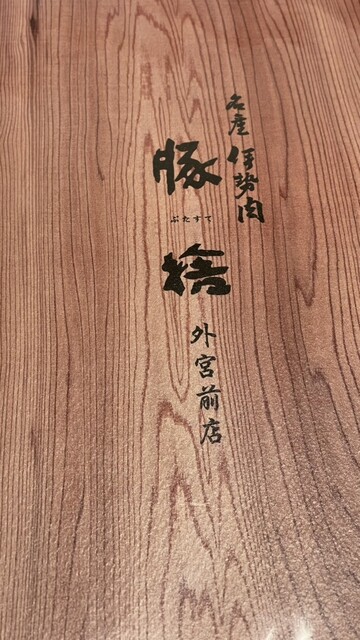 名産 伊勢肉
豚捨
ぶたすて
外宮前店